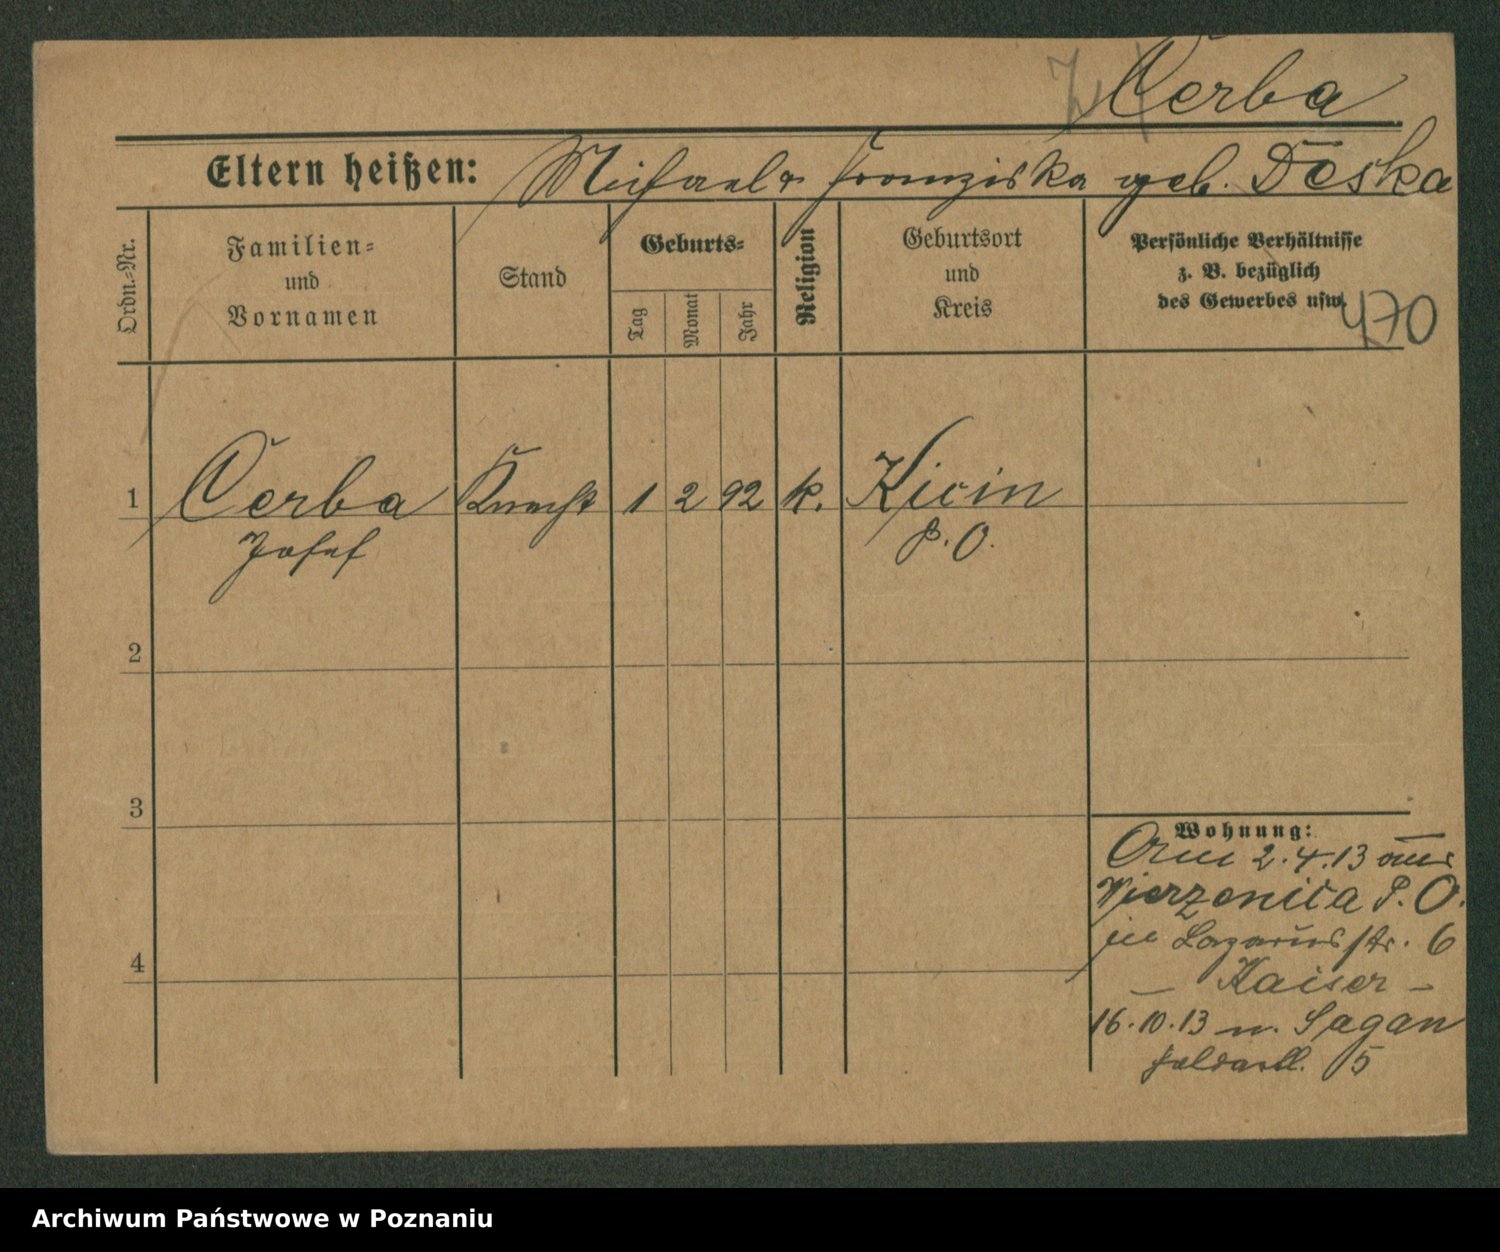 Cerba
Eltern heißen: Michael & Franziska geb. Deska
Ordn.-Nr.
Familien- und Vornamen
Stand
Geburts-
Tag
Monat
Jahr
Religion
Geburtsort und Kreis
Persönliche Verhältnisse
z. B. bezüglich
des Gewerbes usw.
470
1 Cerba Knecht 1 2 92 k. Kicin
Josef P. O.
2
3
4
Wohnung:
2.4.13 aus
Wierzenica P. O.
in Lazarusstr. 6
– Kaiser –
16.10.13 n. Sagan
Feldartll. 5
Archiwum Państwowe w Poznaniu